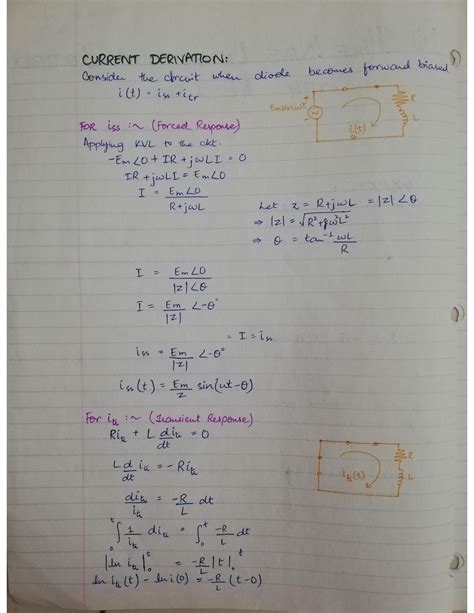 CURRENT DERIVATION:
Consider the circuit when diode becomes forward biased
i(t) = iss + itr
Emsinωt
+
~
-
i(t)
R
L
FOR iss :~ (Forced Response)
Applying KVL to the ckt.
-Em∠0 + IR + jωLI = 0
IR + jωLI = Em∠0
I = Em∠0 / R+jωL
Let z = R+jωL = |z|∠θ
⇒ |z| = √R²+jω²L²
⇒ θ = tan⁻¹ ωL / R
I = Em∠0 / |z|∠θ
I = Em / |z| ∠-θ°
= I = iss
iss = Em / |z| ∠-θ°
iss(t) = Em / z sin(ωt-θ)
For itr :~ (Transient Response)
Ritr + L ditr / dt = 0
L d / dt itr = -Ritr
ditr / itr = -R / L dt
∫₀ᵗ 1 / itr ditr = ∫₀ᵗ -R / L dt
|ln itr|₀ᵗ = -R / L |t|₀ᵗ
ln itr(t) - ln i(0) = -R / L (t-0)
itr(t)
R
L